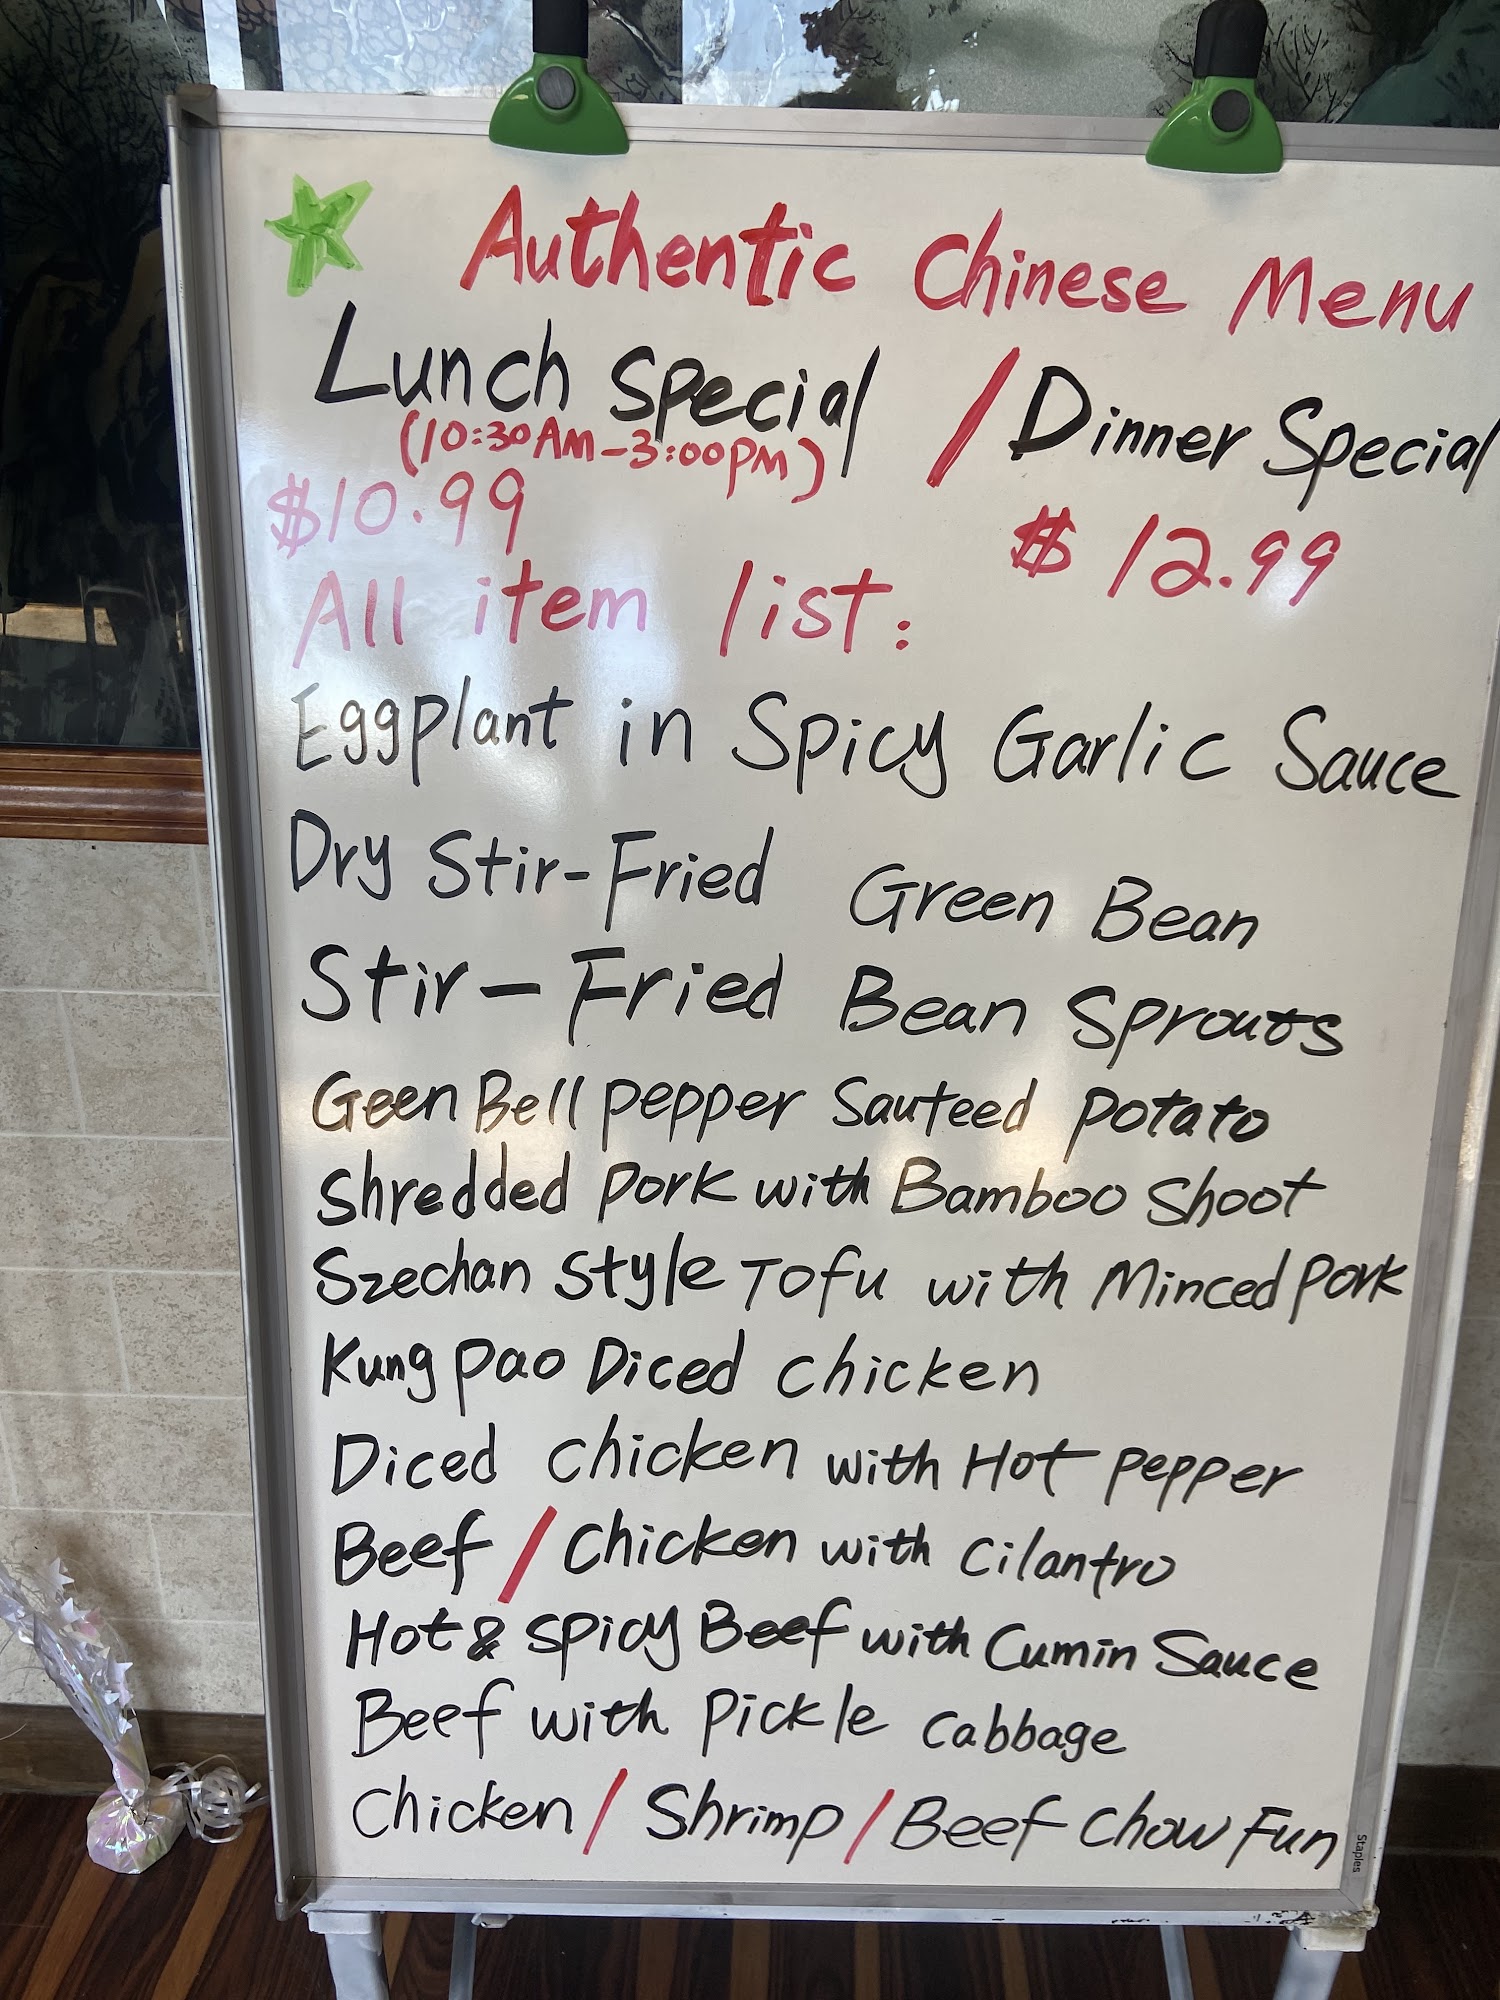 Authentic Chinese Menu
Lunch Special / Dinner Special
(10:30AM-3:00PM)
$10.99 $12.99
All item list:
Eggplant in Spicy Garlic Sauce
Dry Stir-Fried Green Bean
Stir-Fried Bean Sprouts
Geen Bell pepper Sauteed potato
Shredded pork with Bamboo Shoot
Szechan Style Tofu with Minced pork
Kung pao Diced chicken
Diced chicken with Hot pepper
Beef / Chicken with Cilantro
Hot & Spicy Beef with Cumin Sauce
Beef with Pickle Cabbage
Chicken / Shrimp / Beef Chow Fun
Staples